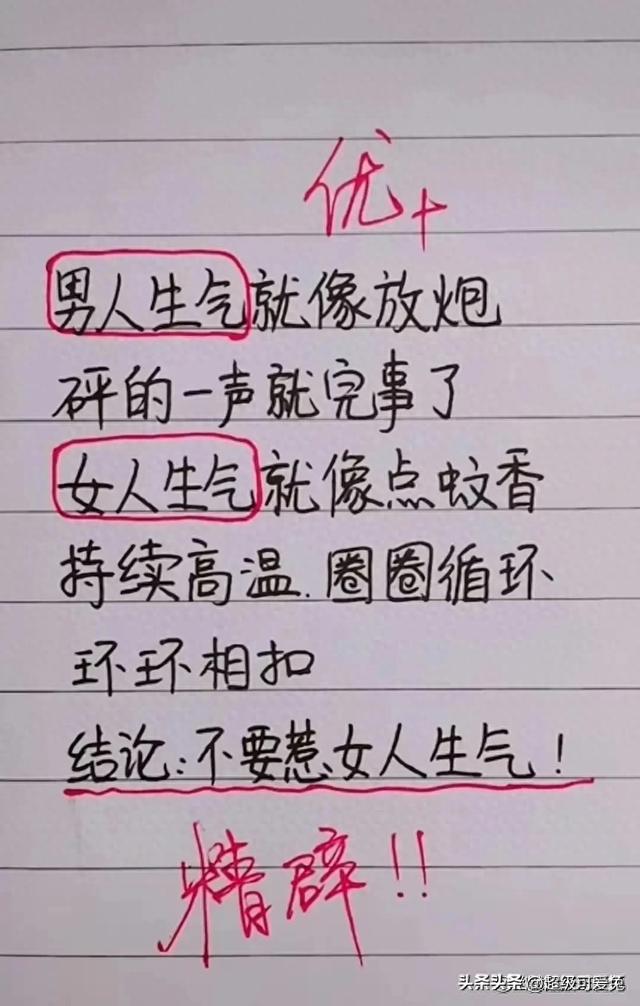 优+
男人生气就像放炮
砰的一声就完事了
女人生气就像点蚊香
持续高温.圈圈循环
环环相扣
结论:不要惹女人生气!
精辟!!
头条头条@超级可爱兔